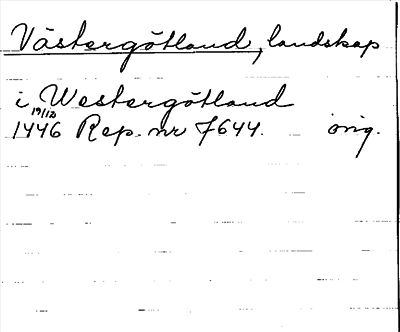 Västergötland, landskap
i Westergötland
19/12
1446 Rep. nr 7644. orig.